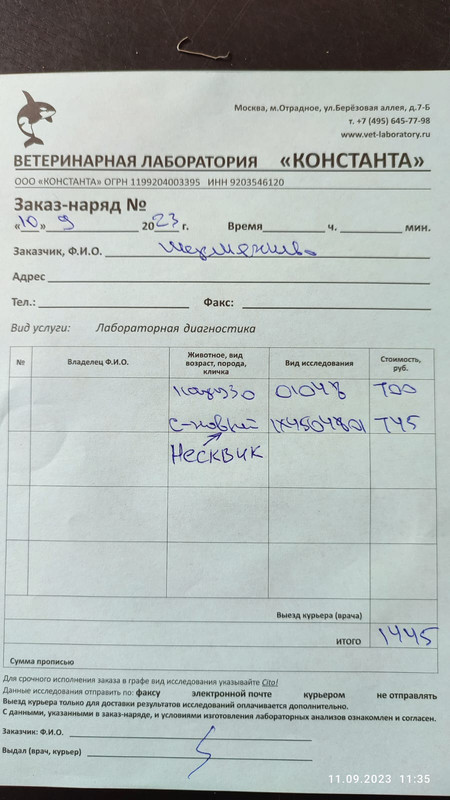 Москва, м.Отрадное, ул.Берёзовая аллея, д.7-Б
т. +7 (495) 645-77-98
www.vet-laboratory.ru
ВЕТЕРИНАРНАЯ ЛАБОРАТОРИЯ «КОНСТАНТА»
ООО «КОНСТАНТА» ОГРН 1199204003395 ИНН 9203546120
Заказ-наряд №
«10» 9 2023 г. Время ч. мин.
Заказчик, Ф.И.О.
Адрес
Тел.: Факс:
Вид услуги: Лабораторная диагностика
№ Владелец Ф.И.О. Животное, вид возраст, порода, кличка Вид исследования Стоимость, руб.
01048 700
745
Несквик
Выезд курьера (врача)
ИТОГО 1445
Сумма прописью
Для срочного исполнения заказа в графе вид исследования указывайте Cito!
Данные исследования отправить по: факсу электронной почте курьером не отправлять
Выезд курьера только для доставки результатов исследований оплачивается дополнительно.
С данными, указанными в заказ-наряде, и условиями изготовления лабораторных анализов ознакомлен и согласен.
Заказчик: Ф.И.О.
Выдал (врач, курьер)
11.09.2023 11:35